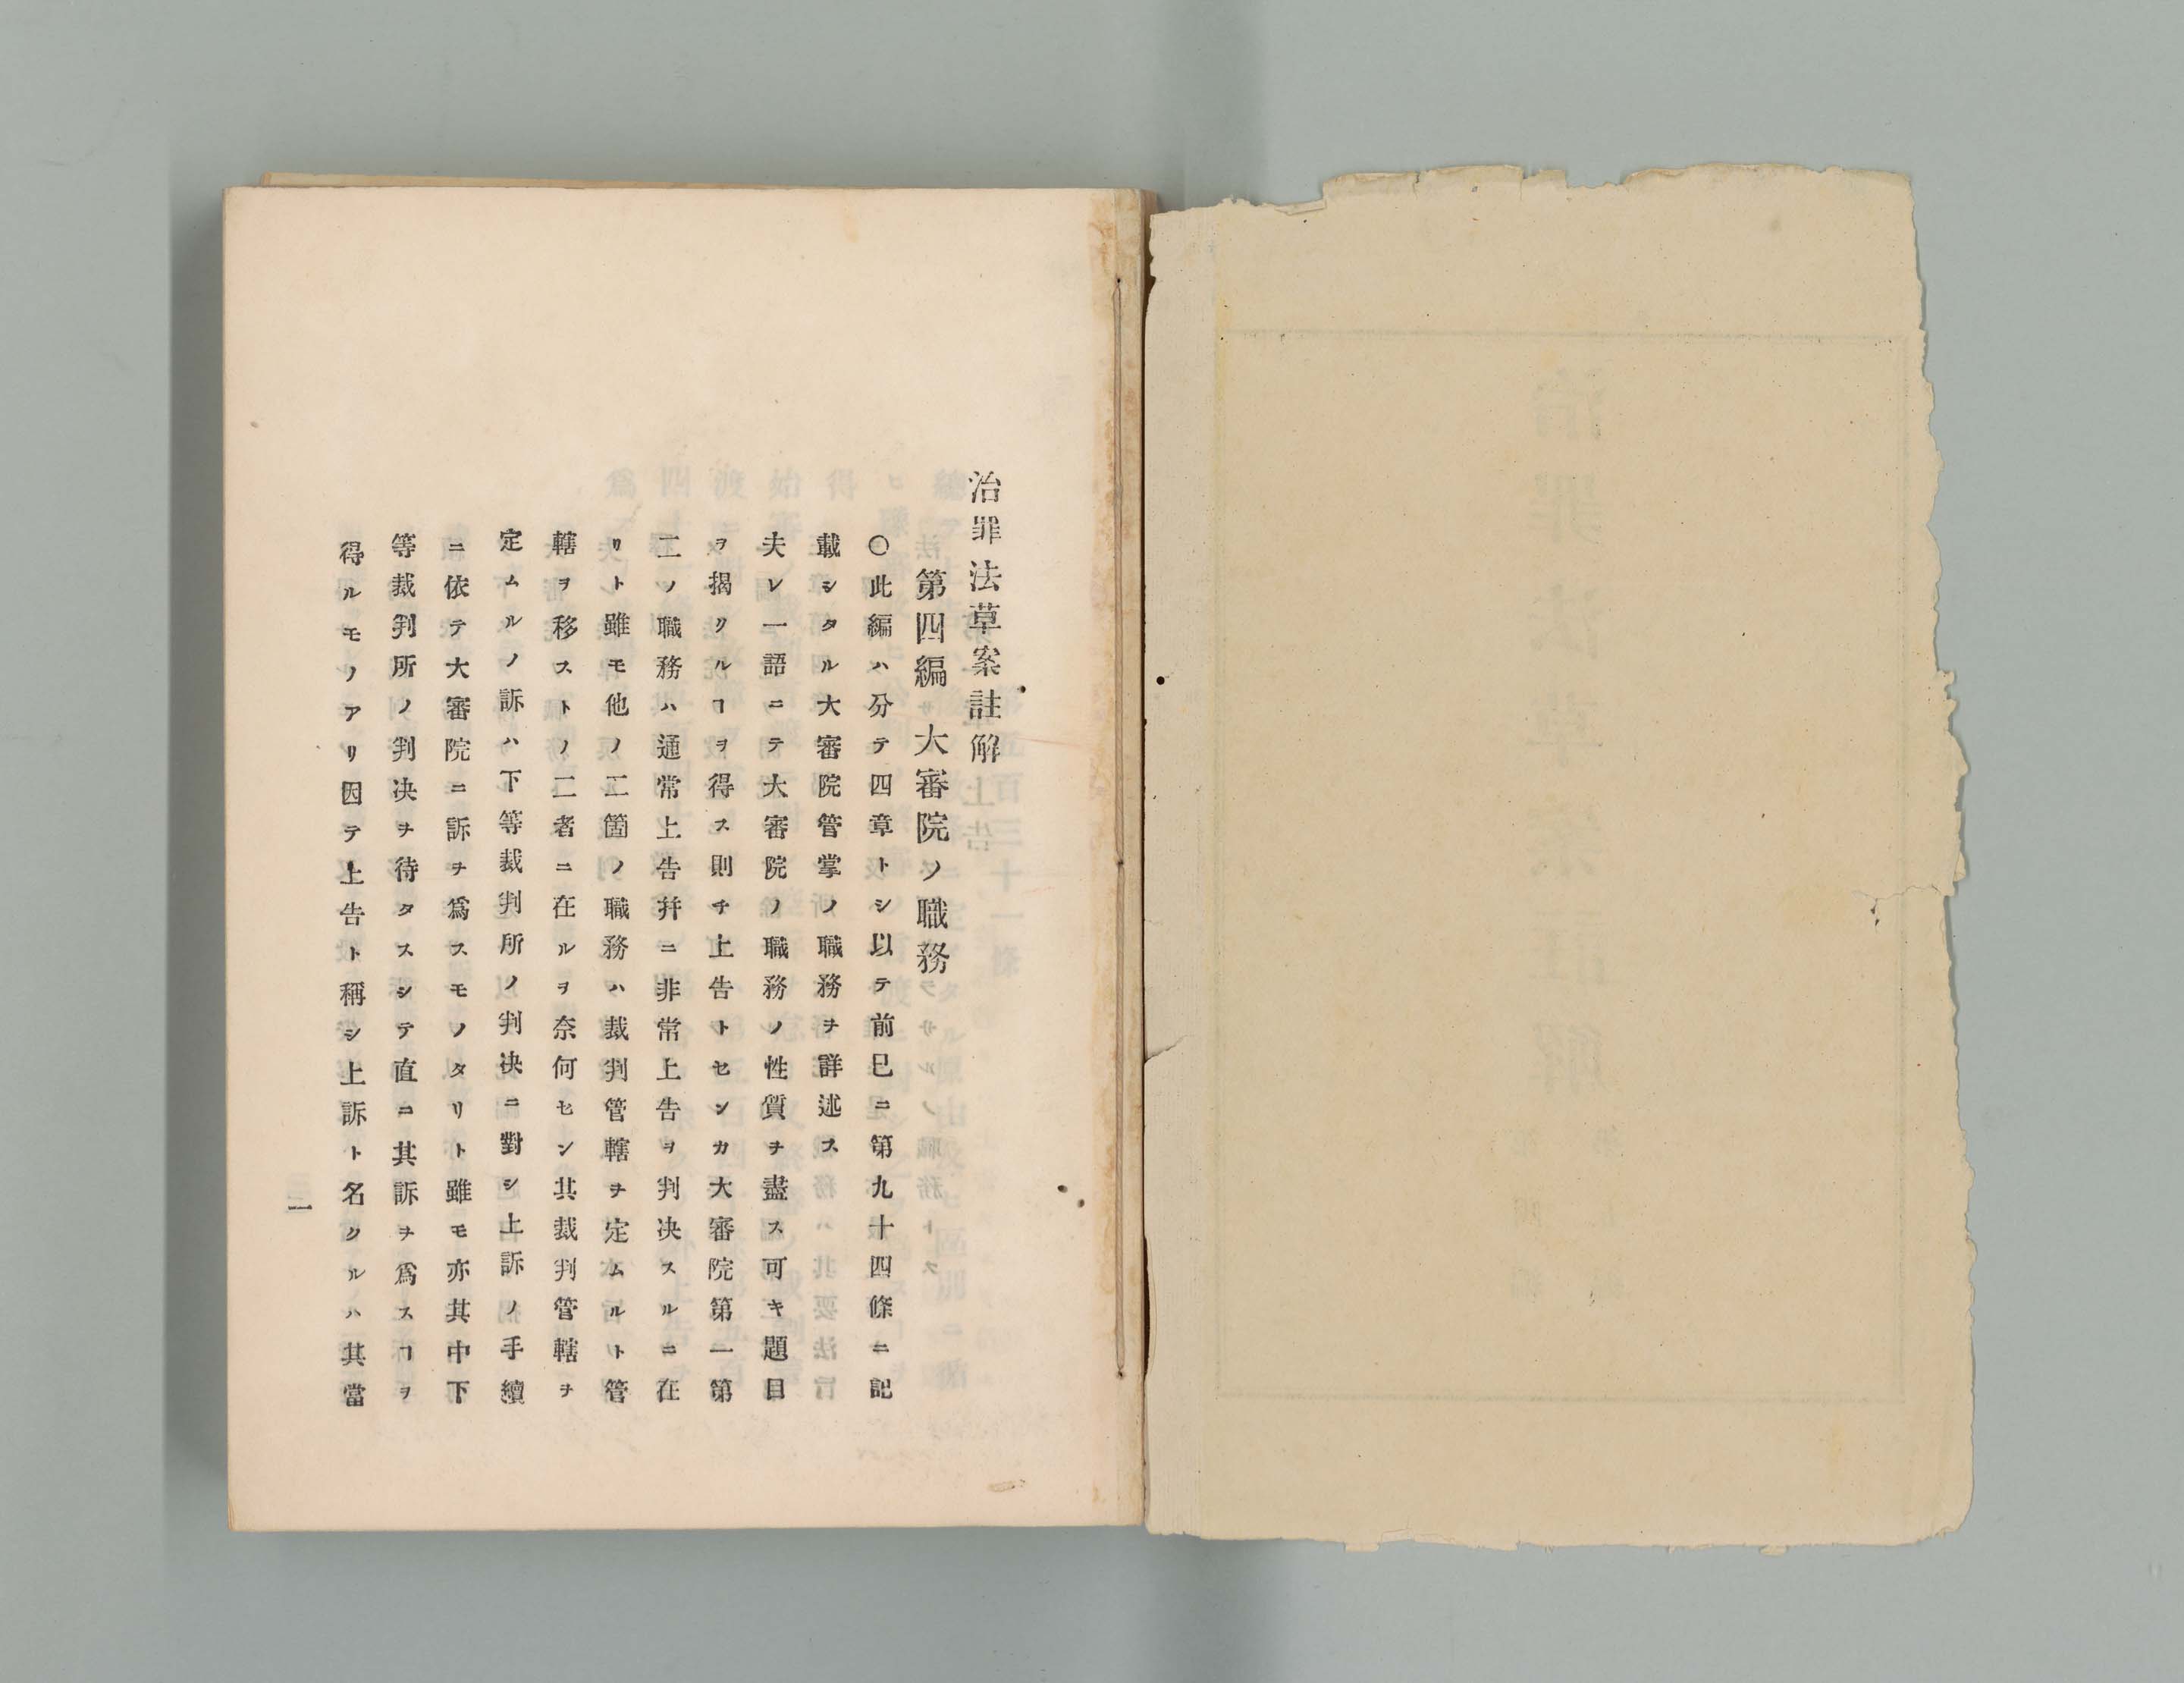 治罪法草案註解
第四編　大審院ノ職務
〇此編ハ分テ四章トシ以テ前已ニ第九十四條ニ記
載シタル大審院管掌ノ職務ヲ詳述ス
夫レ一語ニテ大審院ノ職務ノ性質ヲ盡ス可キ題目
ヲ揭クルヿヲ得ス則チ上告トセンカ大審院第一第
二ノ職務ハ通常上告幷ニ非常上告ヲ判决スルニ在
リト雖モ他ノ二箇ノ職務ハ裁判管轄ヲ定ムルト管
轄ヲ移ストノ二者ニ在ルヲ奈何セン其裁判管轄ヲ
定ムルノ訴ハ下等裁判所ノ判决ニ對シ上訴ノ手續
ニ依テ大審院ニ訴ヲ爲スモノタリト雖モ亦其中下
等裁判所ノ判决ヲ待タスシテ直ニ其訴ヲ爲スヿヲ
得ルモノアリ因テ上告ト稱シ上訴ト名クルハ其當
一